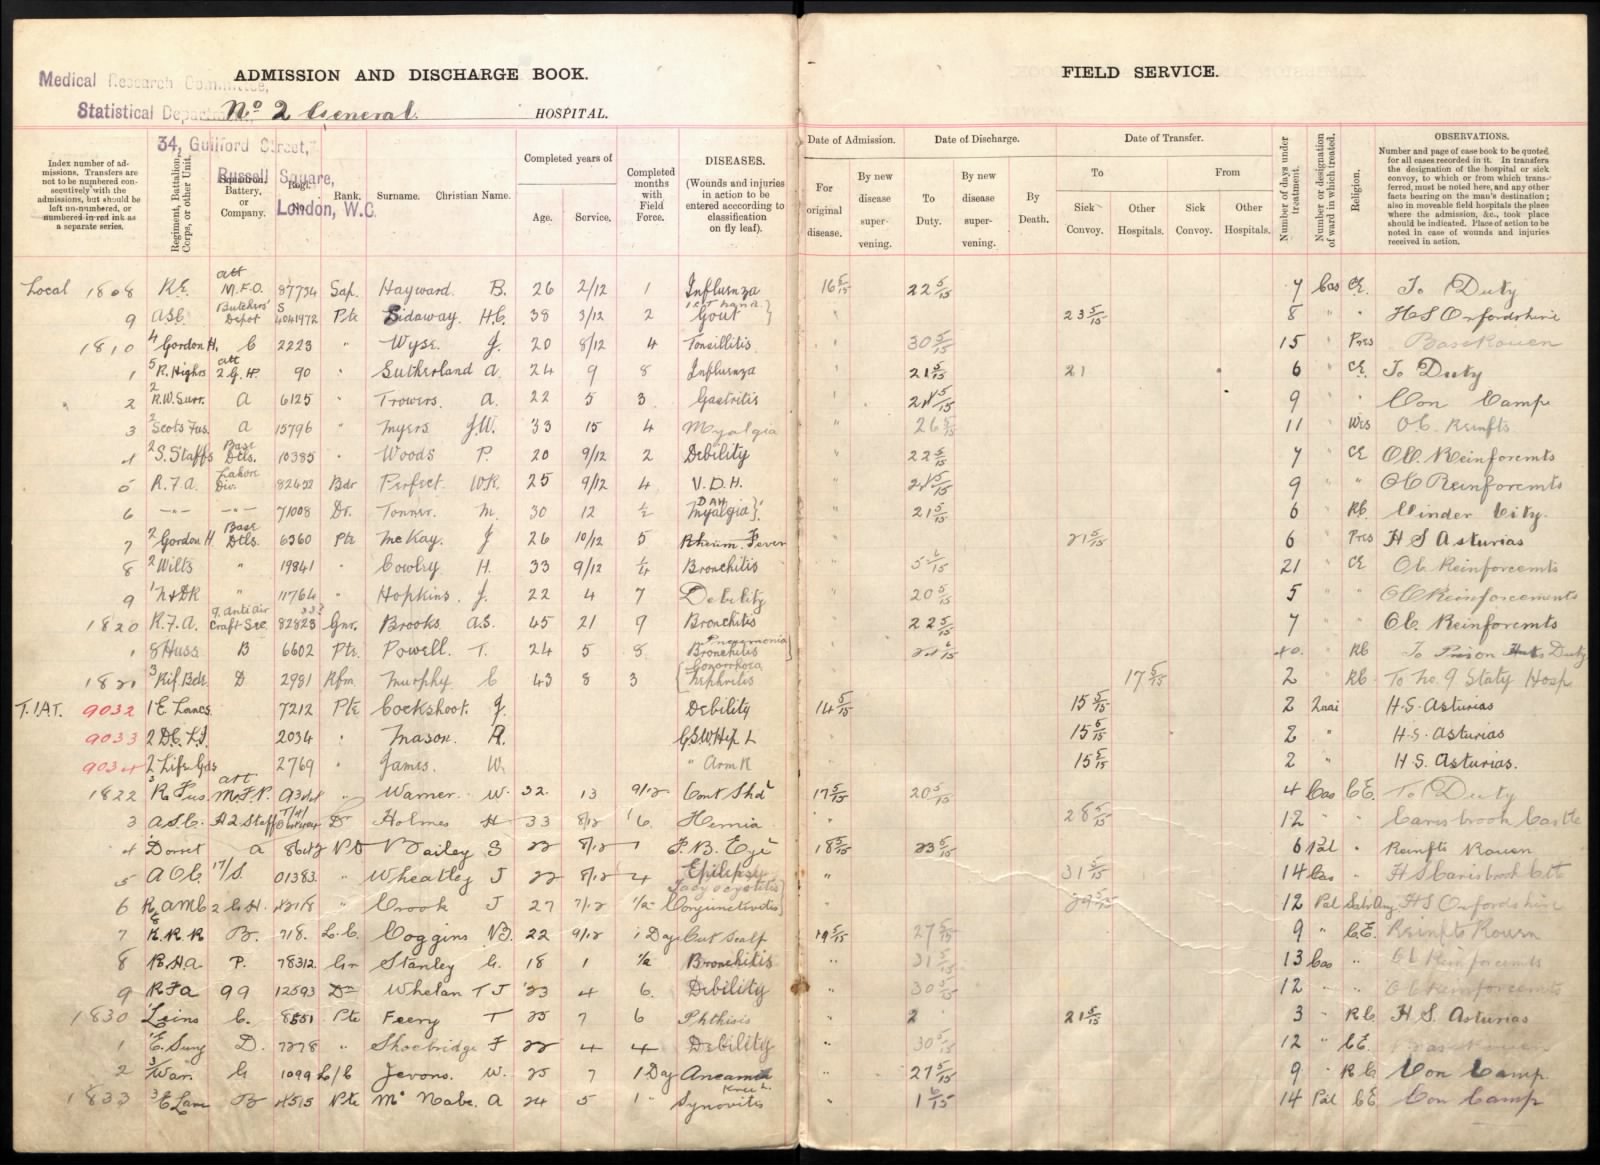 Medical Research Committee,
Statistical Department,
34, Guilford Street,
Russell Square,
London, W.C.
ADMISSION AND DISCHARGE BOOK.
No 2 General HOSPITAL.
FIELD SERVICE.
Index number of admissions. Transfers are not to be numbered consecutively with the admissions, but should be left un-numbered, or numbered in red ink as a separate series.
Regiment, Battalion, Corps, or other Unit.
Squadron, Battery, or Company.
Regl. No.
Rank.
Surname.
Christian Name.
Completed years of
Age.
Service.
Completed months with Field Force.
DISEASES.
(Wounds and injuries in action to be entered acccording to classification on fly leaf).
Date of Admission.
For original disease.
By new disease supervening.
Date of Discharge.
To Duty.
By new disease supervening.
By Death.
Date of Transfer.
To
Sick Convoy.
Other Hospitals.
From
Sick Convoy.
Other Hospitals.
Number of days under treatment.
Number or designation of ward in which treated.
Religion.
OBSERVATIONS.
Number and page of case book to be quoted for all cases recorded in it. In transfers the designation of the hospital or sick convoy, to which or from which transferred, must be noted here, and any other facts bearing on the man's destination; also in moveable field hospitals the place where the admission, &c., took place should be indicated. Place of action to be noted in case of wounds and injuries received in action.
Local 1808 R.E. att M.F.O. 87734 Sap. Hayward. B. 26 2/12 1 Influenza 16 5/15 22 5/15 7 Cas CE. To Duty
9 ASC. Butchers' Depot S 4041972 Pte Sidaway. H.C. 38 3/12 2 Gout } " 23 5/15 8 " " HS Oxfordshire
1810 4 Gordon H. C 2223 " Wyse. J. 20 8/12 4 Tonsillitis " 30 5/15 15 " Pres Base Rouen
1 5 R. Highrs att 2 G.H. 90 " Sutherland A. 24 9 8 Influenza " 21 5/15 21 6 " CE. To Duty
2 2 R.W. Surr. A 6125 " Trowers. A. 22 5 3 Gastritis " 5/15 9 " " Con Camp
3 2 Scots Fus. A 15796 " Myers J.W. 33 15 4 Myalgia " 26 5/15 11 " Wes O.C. Reinfts
4 2 S. Staffs Base Dtls. 10385 " Woods P. 20 9/12 2 Debility " 22 5/15 7 " CE OC. Reinforcemts
5 R.F.A. Lahore Div. Bdr Perfect. W.R. 25 9/12 4 V.D.H. " 5/15 9 " " OC Reinforcemts
6 -"- -"- 71008 Dr. Tonner. M. 30 12 1/2 DAH Myalgia } " 21 5/15 6 " RC. Cinder City.
7 2 Gordon H. Base Dtls. 6360 Pte McKay. J 26 10/12 5 Rheum. Fever " 21 5/15 6 " Pres H S Asturias
8 2 Wilts " 19841 " Cowley H. 33 9/12 1/4 Bronchitis " 5 6/15 21 " CE OC. Reinforcemts
9 1 N&DR " 11764 " Hopkins. J. 22 4 7 Debility " 20 5/15 5 " " OC Reinforcements
1820 R.F.A. 9. Anti Air Craft Sec 82823 Gnr. Brooks. A.S. 45 21 9 Bronchitis " 22 5/15 7 " " OC. Reinforcemts
1 8 Huss B 6602 Pte. Powell. T. 24 5 8 Pneumonia Bronchitis } " 6/15 " RC To Prison Duty
1821 3 Rif. Bde. D 2981 Rfm. Murphy C 43 8 3 { Gonorrhoea Nephritis 17 5/15 2 RC. To No. 9 Staty Hosp
T.I.A.T. 9032 1 E. Lancs. 7212 Pte Cockshoot. J. Debility 14 5/15 15 5/15 2 H.S. Asturias
9033 2 D.C.L.I. 2034 " Mason. R. G.S.W. Hip L " 15 5/15 2 " H.S. Asturias
9034 2 Life Gds 2769 " James. W. " Arm R 15 5/15 2 " H.S. Asturias.
1822 3 R Fus att M.F.P. " Warner. W. 32. 13 9/12 Cont Shd 17 5/15 20 5/15 4 Cas CE. To Duty
3 ASC. H.Q. Staff Dr Holmes H 33 8/12 6. Hernia " 28 5/15 12 " " Carisbrook Castle
4 Dorset A Pte Bailey S 22 8/12 1 F.B. Eye 18 5/15 23 5/15 6 Pal " Reinfts Rouen
5 AOC. 17/S. 01383 " Wheatley J 22 8/12 4 Epilepsy " 31 5/15 14 Cas " HS Carisbrook Cstle
6 RAMC 2 G.H. " Crook J 27 7/12 1/2 Dacryocystitis Conjunctivitis } " 29 5/15 12 Pal Salv Army HS Oxfordshire
7 K.R.R B. 718. L.C. Coggins B. 22 9/12 1 Day Cut Scalp 19 5/15 27 5/15 9 " CE. Reinfts Rouen
8 R.H.A P. 78312. Gr Stanley G. 18 1 1/2 Bronchitis " 31 5/15 13 Cas " OC Reinforcemts
9 RFA 99 12593 Dr Whelan T J 23 4 6. Debility " 30 5/15 12 " " OC Reinforcemts
1830 Leins C. 8551 Pte Feery T 25 7 6 Phthisis " 2 21 5/15 3 " RC H S. Asturias
1 E. Surry D. 7278 " Shoebridge F 22 4 4 Debility " 30 5/15 12 " CE. Base Rouen
2 3/War. G 1099 L/C Jevons. W. 25 7 1 Day Anaemia " 27 5/15 9 " RC Con Camp.
1833 3 E Lanc B Pte McNabe. A 24 5 1" Knee L. Synovitis " 1 6/15 14 Pal CE. Con Camp